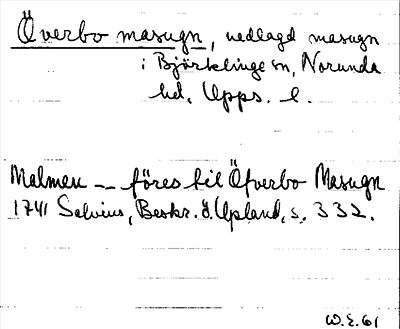 Överbo masugn, nedlagd masugn
i Björklinge sn, Norunda
hd, Upps. l.
Malmen -- föres til Öfverbo Masugn
1741 Salvius, Beskr. ö. Upland, s. 332.
W.E. 61